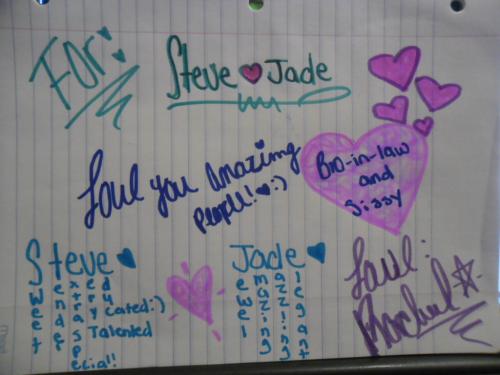 For:
Steve ♥ Jade
Love you Amazing
People! ♥ :)
Bro-in-law
and
Sissy
Steve ♥
Sweet
Extra special!!
Very Talented
Educated :)
Jade ♥
Jewel
amazing
dazzling
elegant
Love:
Rachel